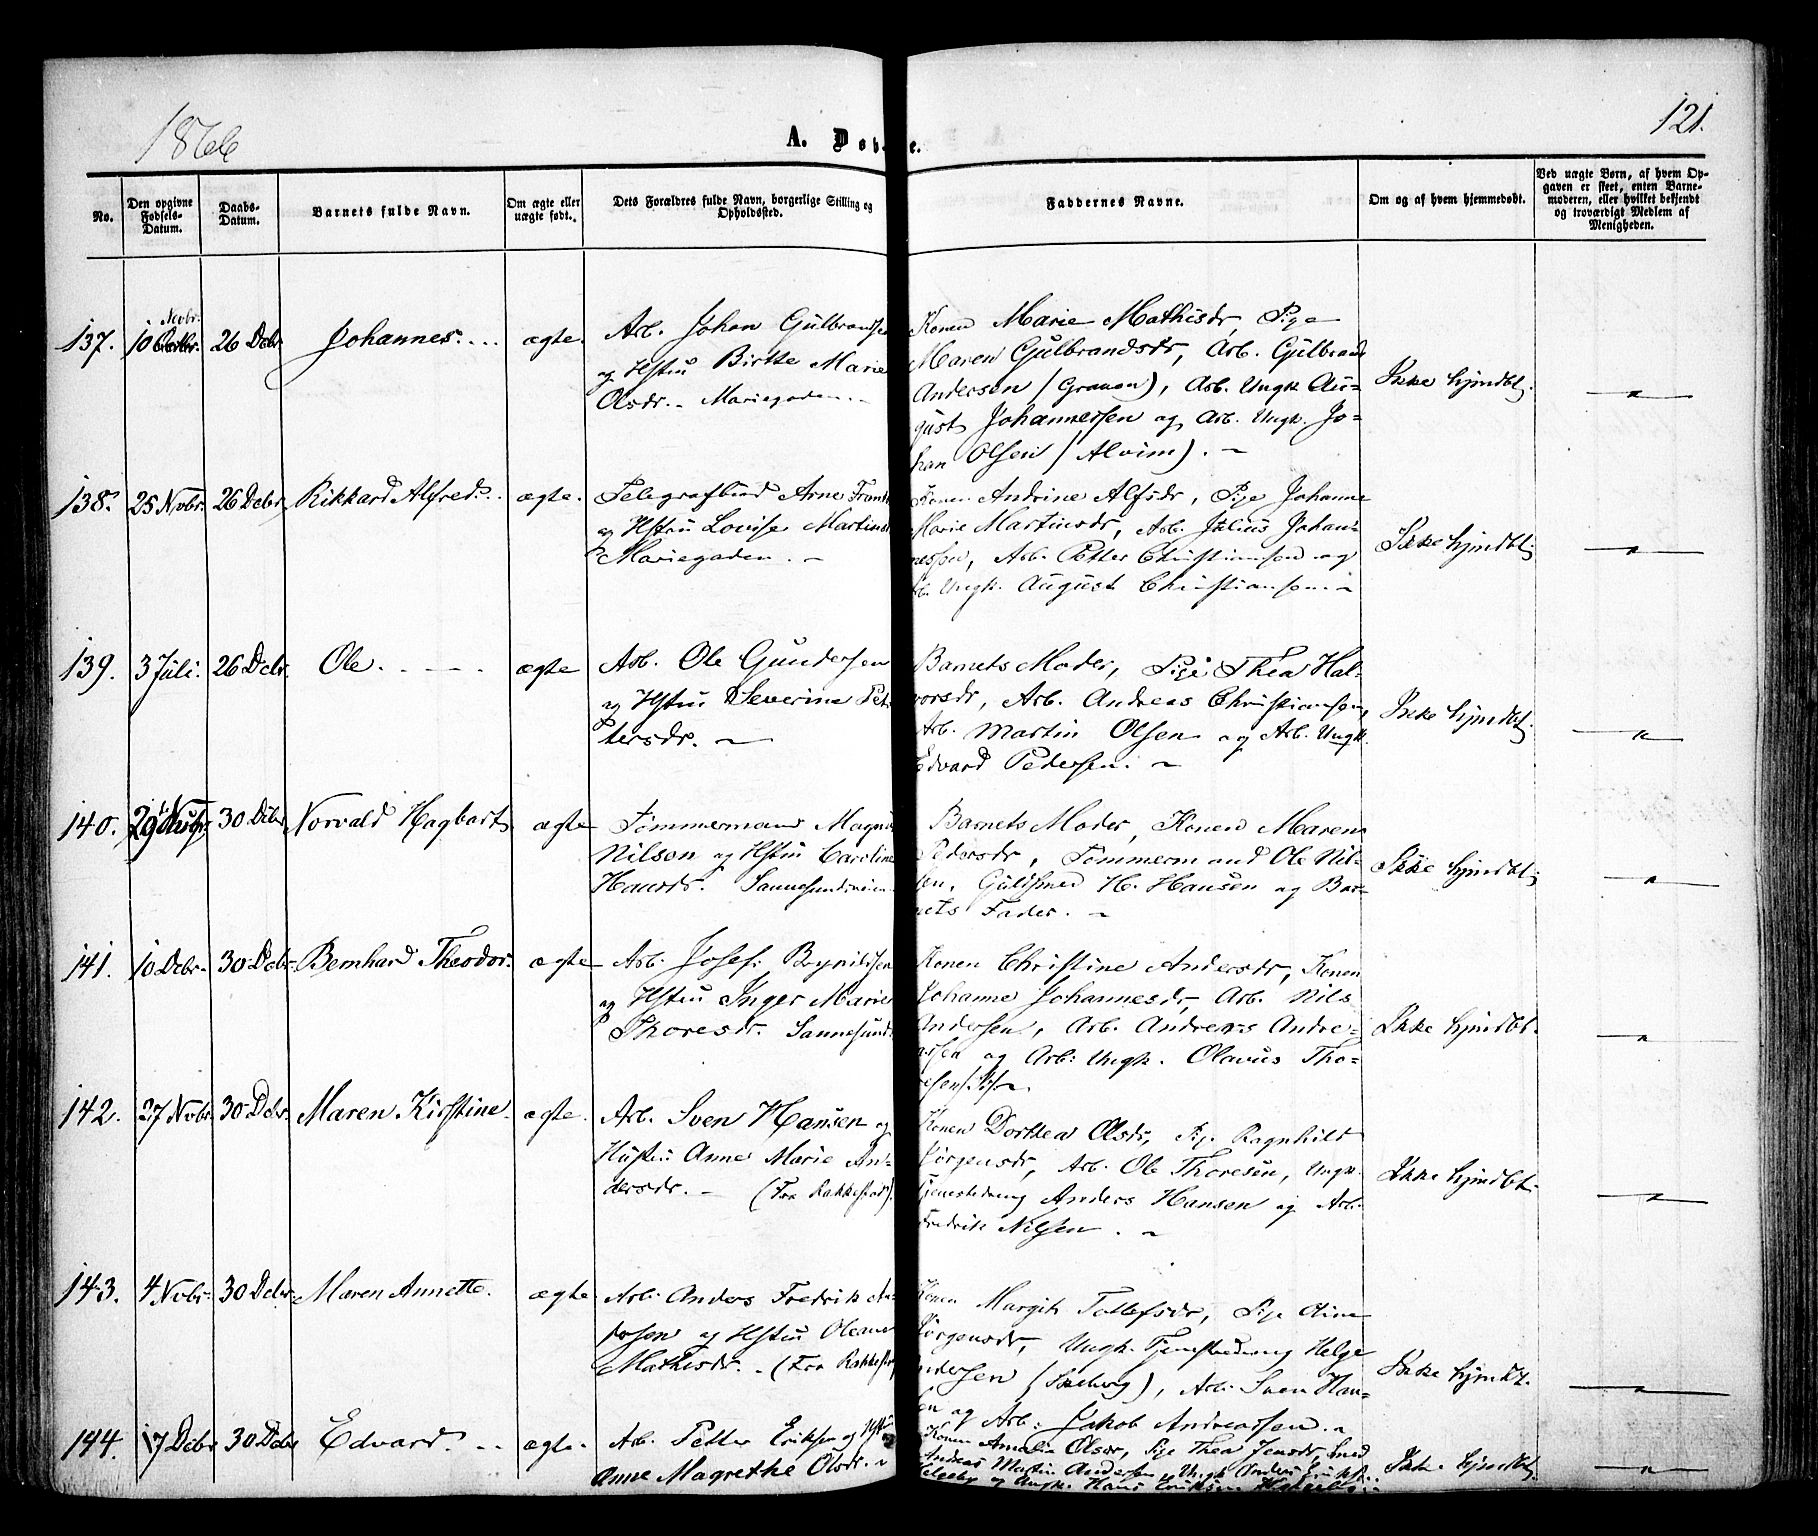 1866
A. Døbte.
121.
No.
Den opgivne Fødsels-Datum.
Daabs-Datum.
Barnets fulde Navn.
Om ægte eller uægte født.
Dets Forældres fulde Navn, borgerlige Stilling og Opholdssted.
Faddernes Navne.
Om og af hvem hjemmedøbt.
Ved uægte Børn, af hvem Opgaven er skeet, enten Barnemoderen, eller hvilket bekjendt og troværdigt Medlem af Menigheden.
137. 10 Novbr. 26 Debr Johannes. ægte.
Arb. Johan Gulbrandsen
og Hstru Birthe Marie
Olsdr. Mariegaden.
Konen Marie Mathisdr, Pige
Maren Gulbrandsdr, Arb. Gulbrand
Andersen (Graven), Arb. Ungk. Au-
gust Johannessen og Arb. Ungk. Jo-
han Olsen (Alvim).
Ikke hjmdbt.
138. 25 Novbr. 26 Debr Rikkard Alfred. ægte.
Telegrafbud Arne
og Hstru Lovise Martinsd
Mariegaden.
Konen Andrine Alfsdr, Pige Johanne
Marie Martinsdr, Arb. Julius Johan-
nessen, Arb. Petter Christiansen og
Arb. Ungk. August Christiansen.
Ikke hjmdbt.
139. 3 Juli. 26 Debr. Ole. ægte
Arb. Ole Gundersen
og Hstru Severine Pet-
tersdr.
Barnets Moder, Pige Thea Hal-
vorsdr, Arb. Andreas Christiansen,
Arb. Martin Olsen og Arb. Ungk.
Edvard Pedersen.
Ikke hjmdbt.
140. 29 30 Debr Norvald Hagbart ægte
Tømmermand Magnus
Nilson og Hstru Caroline
Hansdr. Sannesundveien
Barnets Moder, Konen Maren
Pedersdr, Tømmermand Ole Nil-
sen, Guldsmed H. Hansen og Bar-
nets Fader.
Ikke hjmdbt.
141. 10 Debr. 30 Debr. Bernhard Theodor. ægte
Arb. Josef Brynildsen
og Hstru Inger Marie
Thoresdr. Sannesund
Konen Christine Andersdr, Konen
Johanne Johannesdr, Arb. Nils
Andersen, Arb. Andreas Andre-
assen og Arb. Ungk. Olavus Tho-
resen.
Ikke hjmdbt.
142. 27 Novbr. 30 Debr. Maren Kirstine. ægte.
Arb. Sven Hansen og
Hustru Anne Marie An-
dersdr. (Fra Rakkestad).
Konen Dorthea Olsdr, Pige Ragnhild
Jørgensdr, Arb. Ole Thoresen, Ungk.
Tjenestedreng Anders Hansen og Arb.
Fredrik Nilsen.
Ikke hjmdbt.
143. 4 Novbr. 30 Debr. Maren Annette. ægte
Arb. Anders Fredrik An-
dersen og Hstru Oleane
Mathisdr. (Fra Rakkestad
Konen Margit Tollefsdr, Pige Oline
Jørgensdr, Ungk. Tjenestedreng Helge
Andersen, Arb. Sven Han-
sen og Arb. Jakob Andreassen.
Ikke hjmdbt.
144. 17 Debr 30 Debr Edvard. ægte.
Arb. Petter Eriksen og Hstru
Anne Magrethe Olsdr.
Konen Amalia Olsdr, Pige Thea Jensdr, Smed
Andreas Martin Andersen, Ungk. Anders
og Ungk. Hans Eriksen
Ikke hjmdbt.